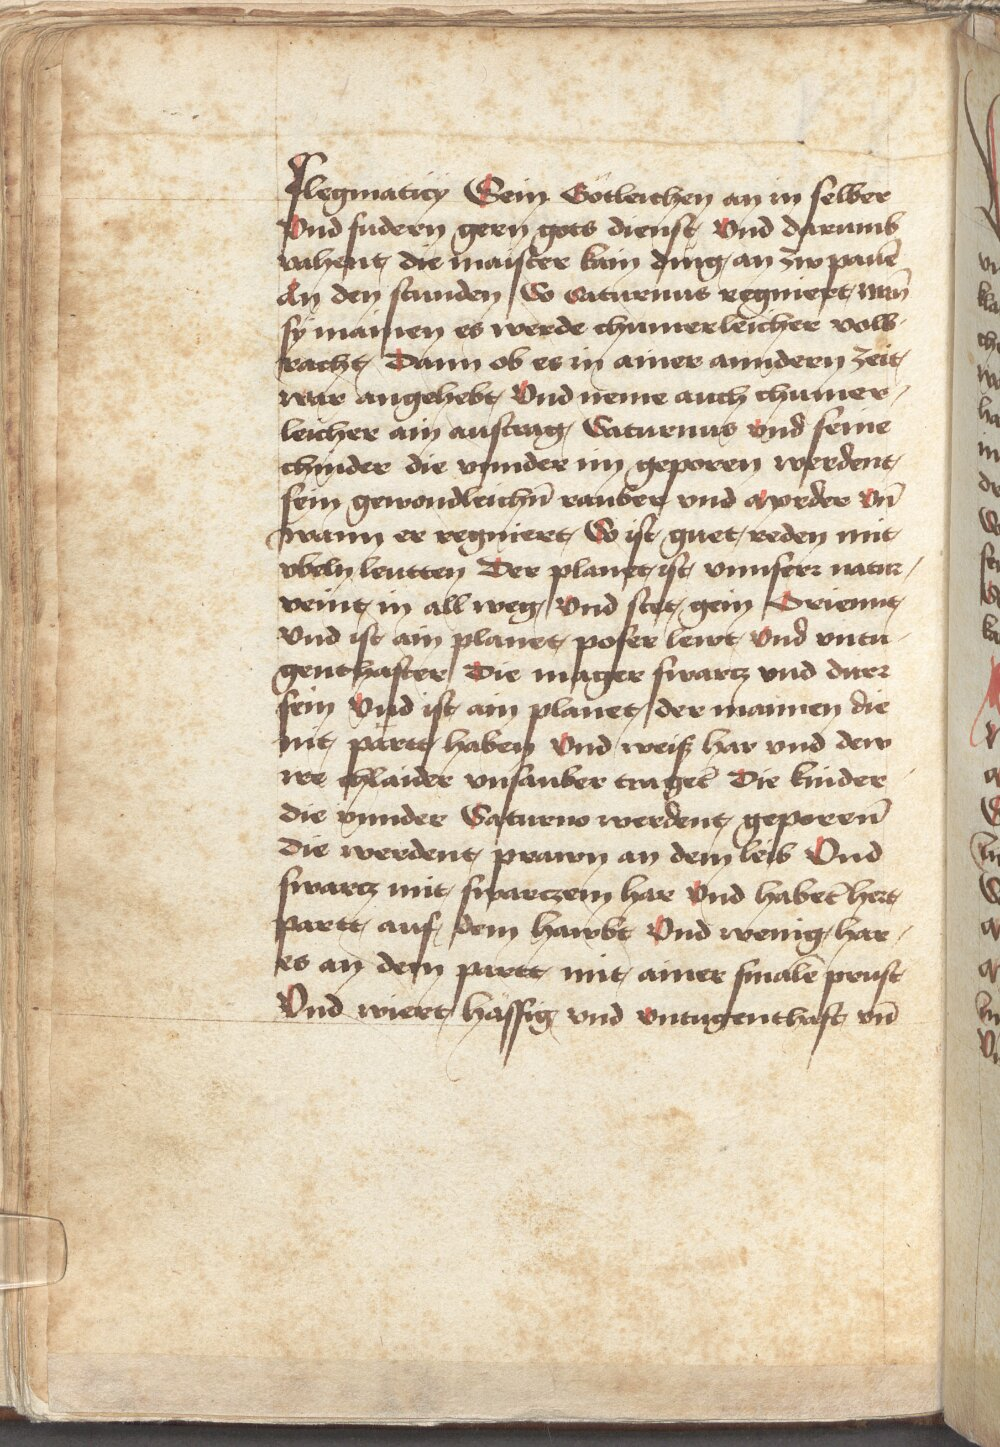 Flegmaticy Sein Götleichen an in selber
Und fudern gern gots dienst Und darumb
vahent die maister kain ding an zw pauē
An den stunden So Saturnus regniert wañ
sy mainen es werde chumerleicher volb-
racht Dann ob es in ainer anndern zeit
war angehebt Und neme auch chumer-
leicher ain austrag Saturnus und seine
chinder die vnnder im geporen werdent
sein gewondleichn̄ rauber vnd Morder Vn̄
wann er regniert So ist guet reden mit
vbeln leutten Der planet ist vnnserr natur
veint in all weg Und stet gein Orient
Und ist ain planet poser lewt Und vntu-
genthafter Die mager swartz vnd durr
sein Und ist ain planet der mannen die
nit pärtt haben Und weiß har vnd dew
ire chlaider vnsauber traget̄ Die kinder
die vnnder Saturno werdent geporen̄
Die werdent prawn an dem leib Und
swartz mit swarczem har Und habet̄ hert
partt auf dem hawbt Und wenig har-
es an dem partt mit ainer smalē prust
Und wiert hässig vnd vntugenthaft vn̄